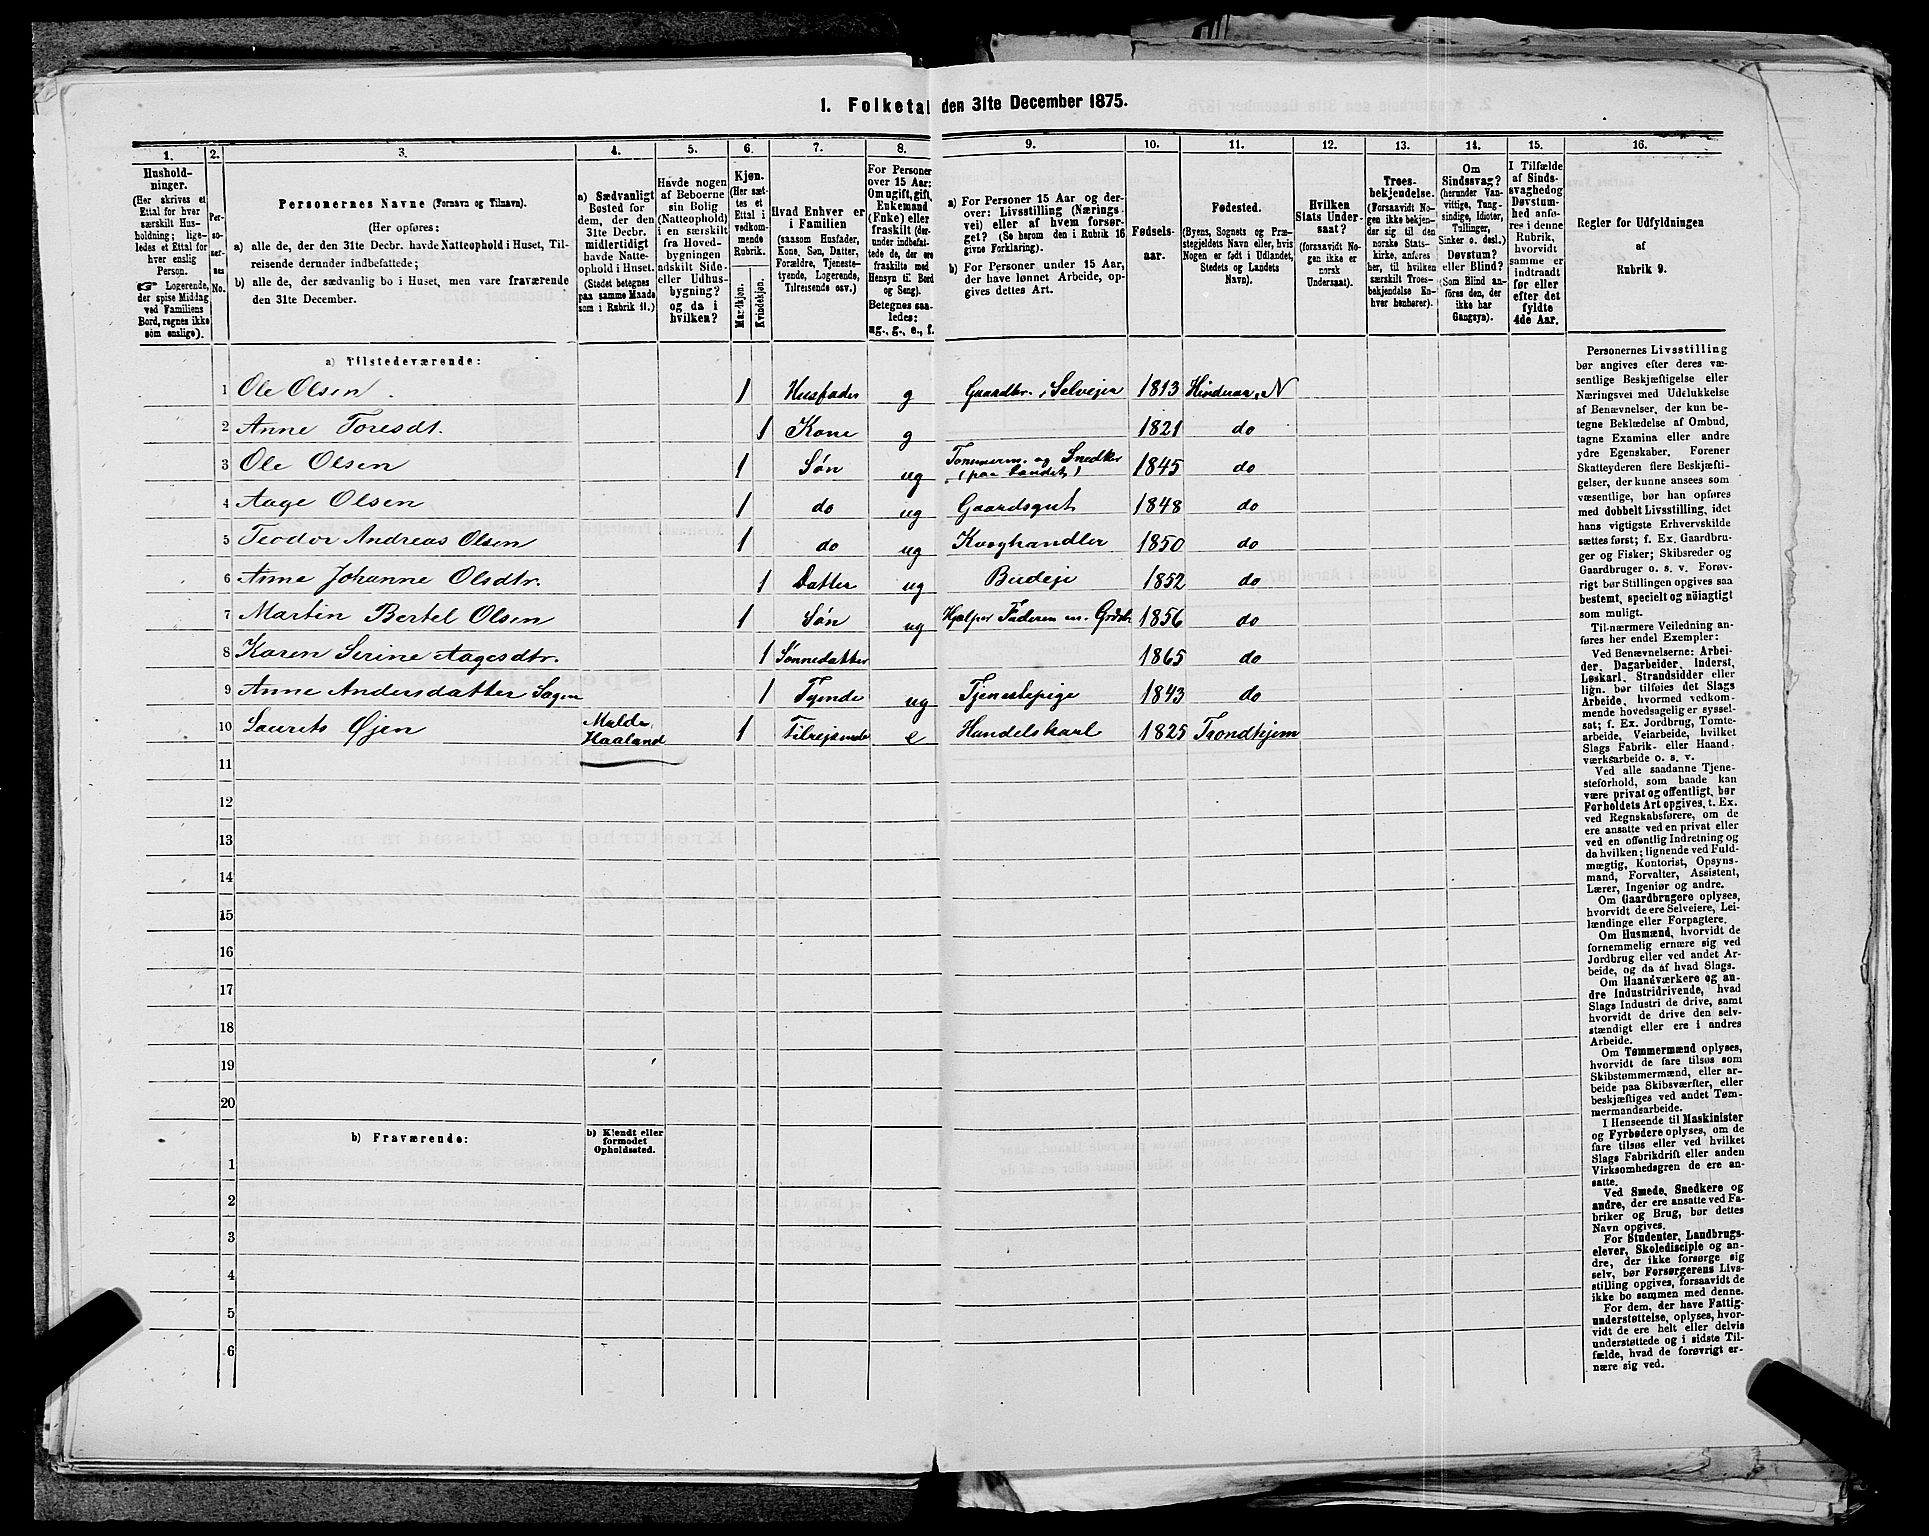 1. Folketal den 31te December 1875.
1. 2. 3. 4. 5. 6. 7. 8. 9. 10. 11. 12. 13. 14. 15. 16.
Hushold-
ninger.
(Her skrives et
Ettal for hver
særskilt Hus-
holdning; lige-
ledes et Ettal for
hver enslig
Person.
Logerende,
der spise Middag
ved Familiens
Bord, regnes ikke
som enslige).
Per-
so-
ner-
nes
No.
Personernes Navne (Fornavn og Tilnavn).
(Her opføres:
a) alle de, der den 31te Decbr. havde Natteophold i Huset, Til-
reisende derunder indbefattede;
b) alle de, der sædvanlig bo i Huset, men vare fraværende
den 31te December.
a) Sædvanligt
Bosted for
dem, der den
31te Decbr.
midlertidigt
havde Natte-
ophold i Huset.
(Stedet betegnes
paa samme Maade
som i Rubrik 11.)
Havde nogen
af Beboerne
sin Bolig
(Natteophold)
i en særskilt
fra Hoved-
bygningen
adskilt Side-
eller Udhus-
bygning?
og da i
hvilken?
Kjøn.
(Her sæt-
tes et
Ettal i
vedkom-
mende
Rubrik.
Mandkjøn.
Kvindekjøn.
Hvad Enhver er
i Familien
(saasom Husfader,
Kone, Søn, Datter,
Forældre, Tjeneste-
tyende, Logerende,
Tilreisende osv.)
For Personer
over 15 Aar:
Om ugift, gift,
Enkemand
(Enke) eller
fraskilt (der-
under indbefat-
tede de, der ere
fraskilte med
Hensyn til Bord
og Seng).
Betegnes saa-
ledes:
ug., g., e., f.
a) For Personer 15 Aar og der-
over: Livsstilling (Nærings-
vei) eller af hvem forsør-
get? (Se herom den i Rubrik 16
givne Forklaring).
b) For Personer under 15 Aar,
der have lønnet Arbeide, op-
gives dettes Art.
Fødsels-
aar.
Fødested.
(Byens, Sognets og Præ-
stegjeldets Navn eller, hvis
Nogen er født i Udlandet,
Stedets og Landets
Navn).
Hvilken
Stats Under-
saat?
(forsaavidt No-
gen ikke er
norsk
Undersaat).
Troes-
bekjendelse.
(Forsaavidt No-
gen ikke bekjen-
der sig til den
norske Stats-
kirke, anføres
her, til hvilken
særskilt Troes-
bekjendelse En-
hver henhører).
Om
Sindssvag?
(herunder Van-
vittige, Tung-
sindige, Idioter,
Tullinger,
Sinker o. desl.)
Døvstum?
eller Blind?
(Som Blind an-
føres den, der
ikke har
Gangsyn).
I Tilfælde
af Sinds-
svaghed og
Døvstum-
hed anfø-
res i denne
Rubrik,
hvorvidt
samme er
indtraadt
før eller
efter det
fyldte
4de Aar.
Regler for Udfyldningen
af
Rubrik 9.
a) Tilstedeværende:
1 Ole Olsen 1 Husfader g Gaardbr. Selveier 1813 N
2 Anne Toresdt. 1 Kone g 1821 do
3 Ole Olsen 1 Søn ug Tømmerm. og Snedker (paa Landet) 1845 do
4 Aage Olsen 1 do ug Gaardsgut 1848 do
5 Teodor Andreas Olsen 1 do ug Kveghandler 1850 do
6 Anne Johanne Olsdtr. 1 Datter ug Budeje 1852 do
7 Martin Bertel Olsen 1 Søn ug Hjælper Faderen m. 1856 do
8 Karen Serine Aagesdtr. 1 Sønnedatter 1865 do
9 Anne Andersdatter 1 Tyende ug Tjenestepige 1843 do
10 Laurits Øjen Haaland 1 Tilrejsende e Handelskarl 1825 Trondhjem
11
12
13
14
15
16
17
18
19
20
b) Fraværende:
b) Kjendt eller
formodet
Opholdssted.
1
2
3
4
5
6
Personernes Livsstilling
bør angives efter deres væ-
sentlige Beskjæftigelse eller
Næringsvei med Udelukkelse
af Benævnelser, der kun be-
tegne Beklædelse af Ombud,
tagne Examina eller andre
ydre Egenskaber. Forener
Skatteyderen flere Beskjæfti-
gelser, der kunne ansees som
væsentlige, bør han opføres
med dobbelt Livsstilling, idet
hans vigtigste Erhvervskilde
sættes først; f. Ex. Gaardbru-
ger og Fisker; Skibsreder og
Gaardbruger o. s. v. Forøv-
rigt bør Stillingen opgives saa
bestemt, specielt og nöiagtigt
som muligt.
Til nærmere Veiledning an-
føres her endel Exempler:
Ved Benævnelserne: Arbei-
der, Dagarbeider, Inderst,
Løskarl, Strandsidder eller
lign. bør tilføies det Slags
Arbeide, hvormed vedkom-
mende hovedsagelig er syssel-
sat; f. Ex. Jordbrug, Tomte-
arbeide, Veiarbeide, hvilket
Slags Fabrik- eller Haand-
værksarbeide o. s. v.
Ved alle saadanne Tjene-
steforhold, som baade kan
være privat og offentligt, bør
Forholdets Art opgives, t. Ex.
ved Regnskabsførere, om de
ere ansatte ved en privat eller
ved en offentlig Indretning og
da hvilken; lignende ved Fuld-
mægtig, Kontorist, Opsyns-
mand, Forvalter, Assistent,
Lærer, Ingeniør og andre.
Om Gaardbrugere oplyses,
hvorvidt de ere Selveiere, Lei-
lændinge eller Forpagtere.
Om Husmænd, hvorvidt de
fornemmelig ernære sig ved
Jordbrug eller ved andet Ar-
beide, og da af hvad Slags.
Om Haandværkere og an-
dre Industridrivende, hvad
Slags Industri de drive, samt
hvorvidt de drive den selv-
stændigt eller ere i andres
Arbeide.
Om Tømmermænd oplyses,
hvorvidt de fare tilsøs som
Skibstømmermænd, eller ar-
beide paa Skibsværfter, eller
beskjæftiges ved andet Tøm-
mermandsarbeide.
I Henseende til Maskinister
og Fyrbødere oplyses, om de
fare tilsøs eller ved hvilket
Slags Fabrikdrift eller anden
Virksomhedsgren de ere an-
satte.
Ved Smede, Snedkere og
andre, der ere ansatte ved Fa-
briker og Brug, bør dettes
Navn opgives.
For Studenter, Landbrugs-
elever, Skoledisciple og an-
dre, der ikke forsørge sig
selv, bør Forsørgerens Livs-
stilling opgives, forsaavidt de
ikke bo sammen med denne.
For dem, der have Fattig-
understøttelse, oplyses, hvor-
vidt de ere helt eller delvis
understøttede og i sidste Til-
fælde, hvad de forøvrigt er-
nære sig ved.